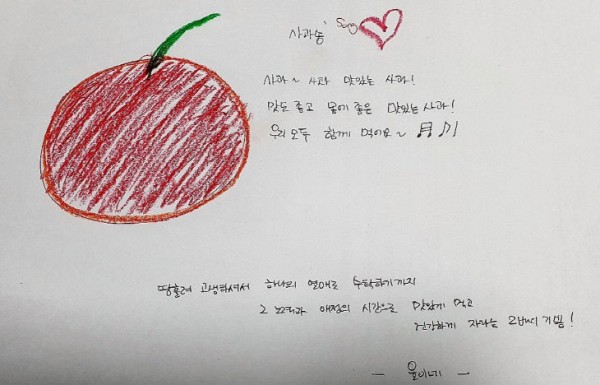 사과송 Song
사과~ 사과 맛있는 사과!
맛도 좋고 몸에 좋은 맛있는 사과!
우리모두 함께 먹어요~
땀흘려 고생하셔서 하나의 열매로 수확하기까지
그 노력과 애정의 시간으로 맛있게 먹고
건강하게 자라는